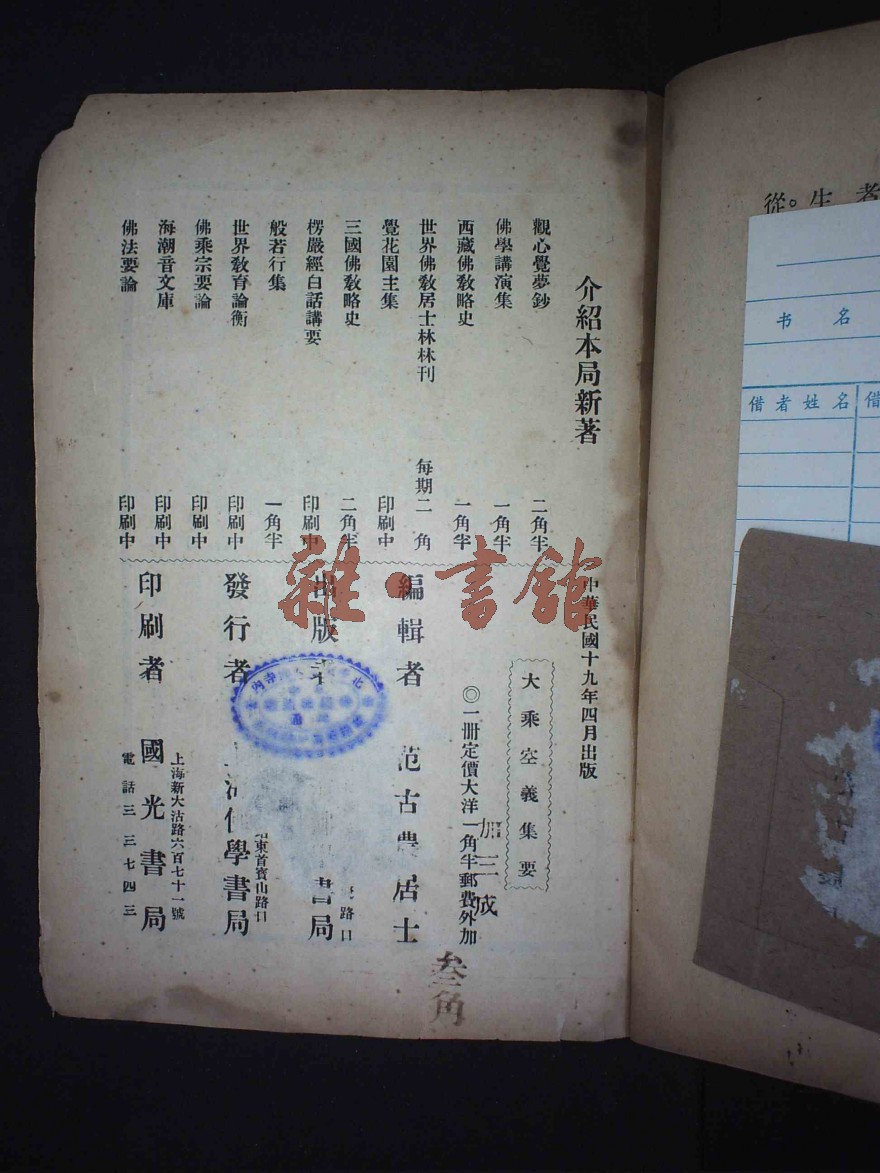 介紹本局新著
觀心覺夢鈔 二角半
佛學講演集 一角半
西藏佛敎略史 一角半
世界佛敎居士林林刊 每期二角
覺花園主集 印刷中
三國佛敎略史 二角半
楞嚴經白話講要 印刷中
般若行集 一角半
世界敎育論衡 印刷中
佛乘宗要論 印刷中
海潮音文庫 印刷中
佛法要論 印刷中
中華民國十九年四月出版
大乘空義集要
◎一册定價大洋一角半郵費外加
加三成
叁角
編輯者 范古農居士
出版者 書局
路口
發行者 學書局
東首寶山路口
印刷者 國光書局
上海新大沽路六百七十一號
電話三三七四三
雜·書館
者
生
從。
书名
借者姓名
借